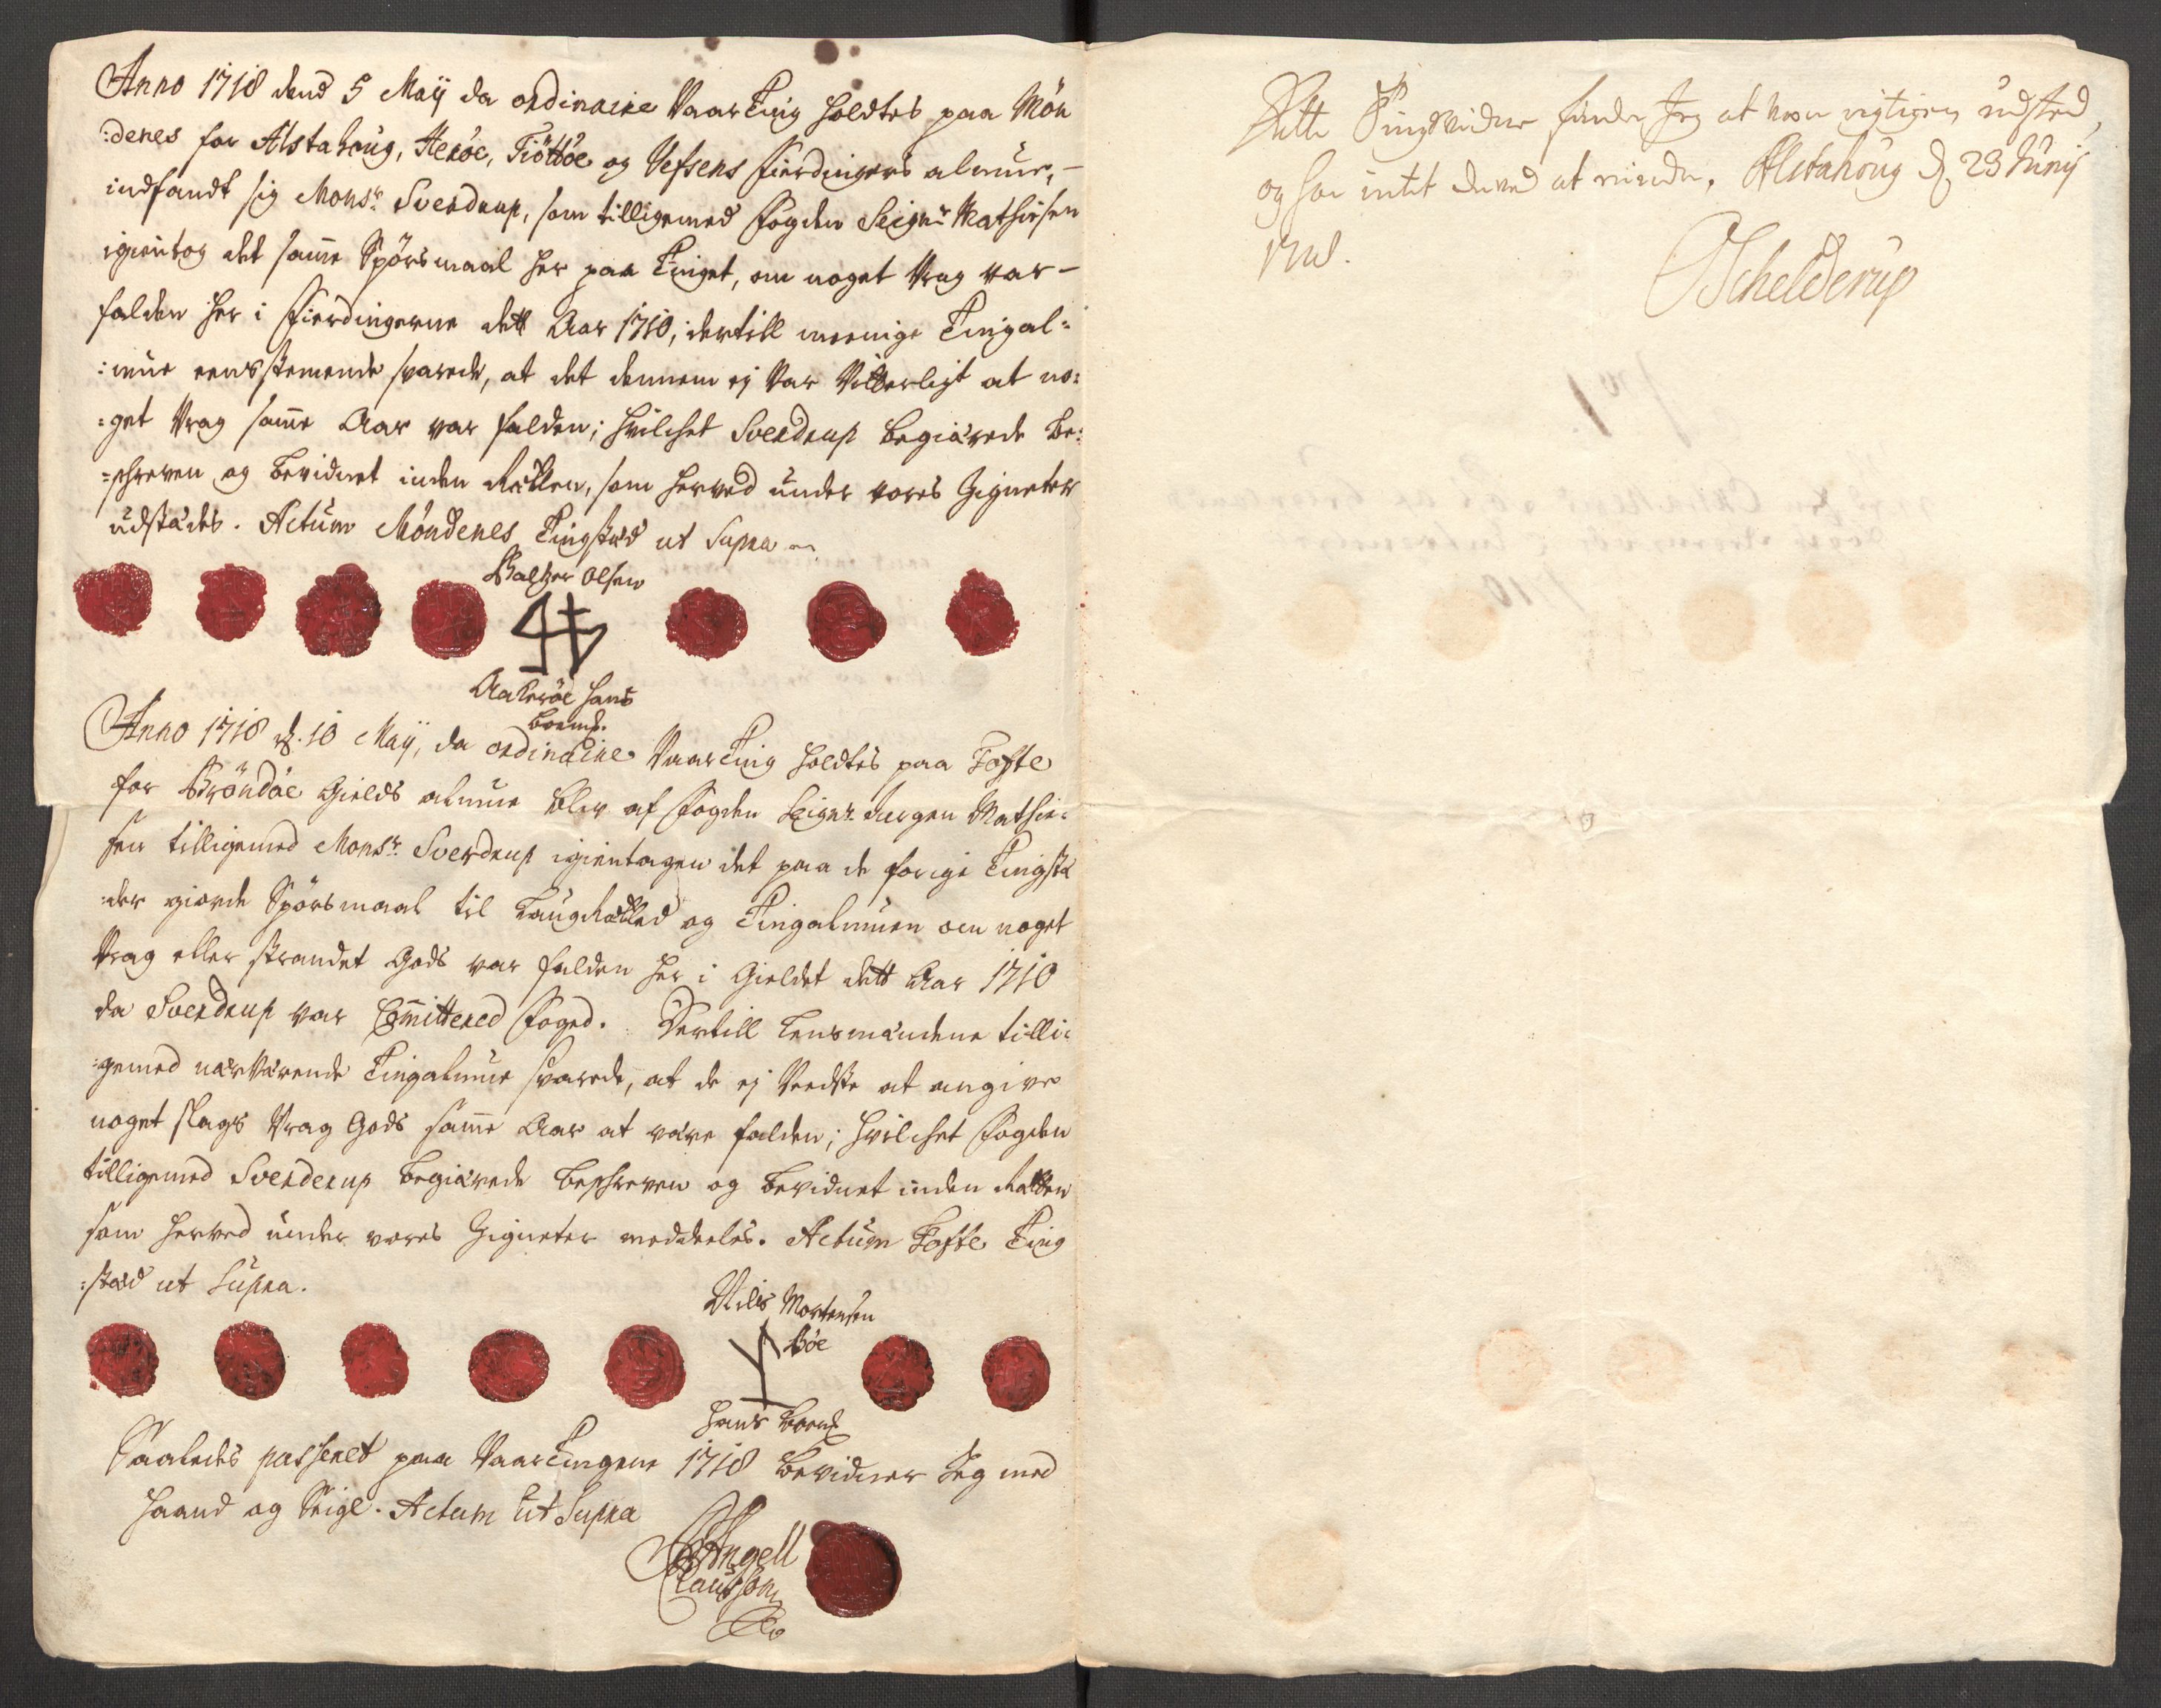 Anno 1718 dend 5 Maÿ da ordinaire VaarTing holdtes paa Mön
:denes for Alstahoug, Heröe, Tiöttöe og Vefsens Fierdingers almue,-
indfandt sig Monsr. Sverdrup, som tilligemed Fogden Seignr Mathiesen
igientog det samme Spörsmaal her paa Tinget, om noget Vrag var-
falden her i Fierdingerne dett Aar 1710, dertill meenige Tingal=
:mue eensstemende svarede, at det dennem ej Var Vitterligt at no=
:get Vrag samme Aar var falden; hvilchet Sverdrup begiærede be=
=schreven og bevidnet inden Rætten, som herved under vores Zigneter
udstædes. Actum Möndenes Tingstæd ut Supra
Baltzer Olsen
Aakeröe hans
boemk.
Anno 1718 d. 10 Maÿ, da ordinaire VaarTing holdtes paa Tofte
for Bröndöe Gields almue blev af Fogden Seignr. Jurgen Mathie=
sen tilligemed Monsr. Sverdrup igientagen det paa de forige Tingstæ
:der giorde Spörsmaal til Laugrætted og Tingalmuen om noget
Vrag eller strandet Gods var falden her i Gieldet dett Aar 1710
da Sverdrup var Committered Foged. Dertill Lensmændene tilli=
:gemed nærværende Tingalmue svarede, at de ej Veedste at angive
noget slags Vrag Gods samme Aar at være falden; hvilchet Fogden
tilligemed Sverderup begiærede beschreven og bevidnet inden Rætten
som herved under vores Zigneter meddeeles. Actum Tofte Ting
:stæd ut Supra.
Nils Mortensen
Böe
hans boemk
Saaledes passeret paa VaarTingene 1718 bevidner Jeg med
haand og Seigl. Actum ut Supra
Angell
Claussön
Dette Tingsvidne finder Jeg at være rigtigen udsted,
og har intet derved at minde. Alstahoug d. 23 Junÿ
1718.
Schelderup